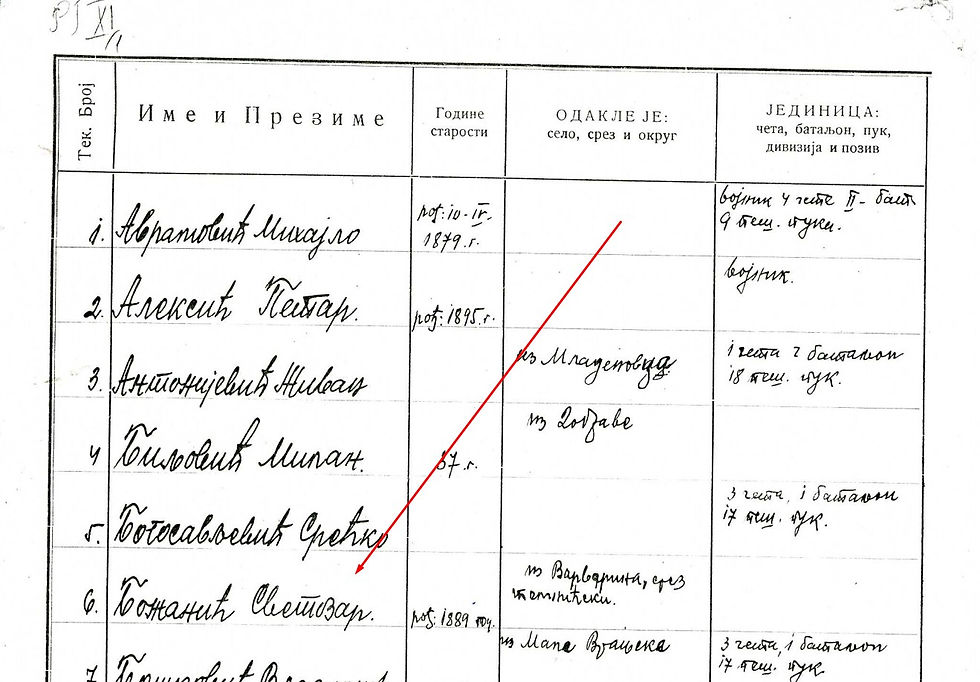 XI/1
Тек. Број
Име и Презиме
Године
старости
ОДАКЛЕ ЈЕ:
село, срез и округ
ЈЕДИНИЦА:
чета, батаљон, пук,
дивизија и позив
1. Аврамовић Михајло
рођ: 10-IV-
1879. г.
војник 4 чете II - бат.
9 пеш. пука.
2. Алексић Петар.
рођ: 1895. г.
војник.
3. Антонијевић Живан
из Младеновца
1 чета 2 баталион
18 пеш. пук.
4 Миљан.
37 г.
из
5. Богосављевић Срећко
3 чета, 1 баталион
17 пеш. пук.
6. Божанић Светозар.
рођ: 1889 год.
из Варварина, срез
темнићски.
7.
из Мала Врањска
3 чета, 1 баталион
17 пеш. пук